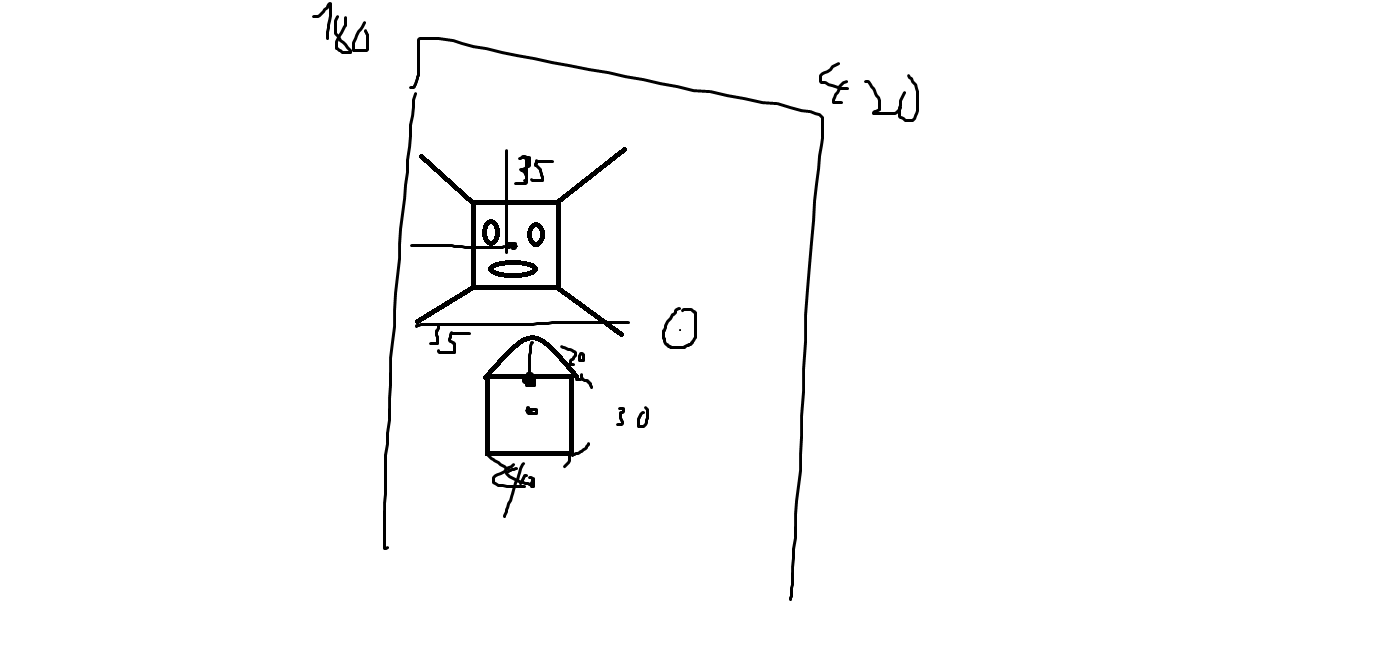 180
420
35
35
0
20
30
40